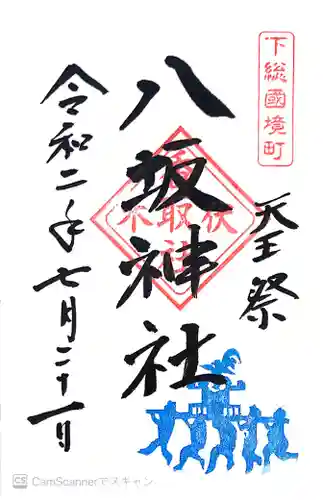 下総國境町
天王祭
八坂神社
令和二年七月二十一日
CS CamScannerでスキャン